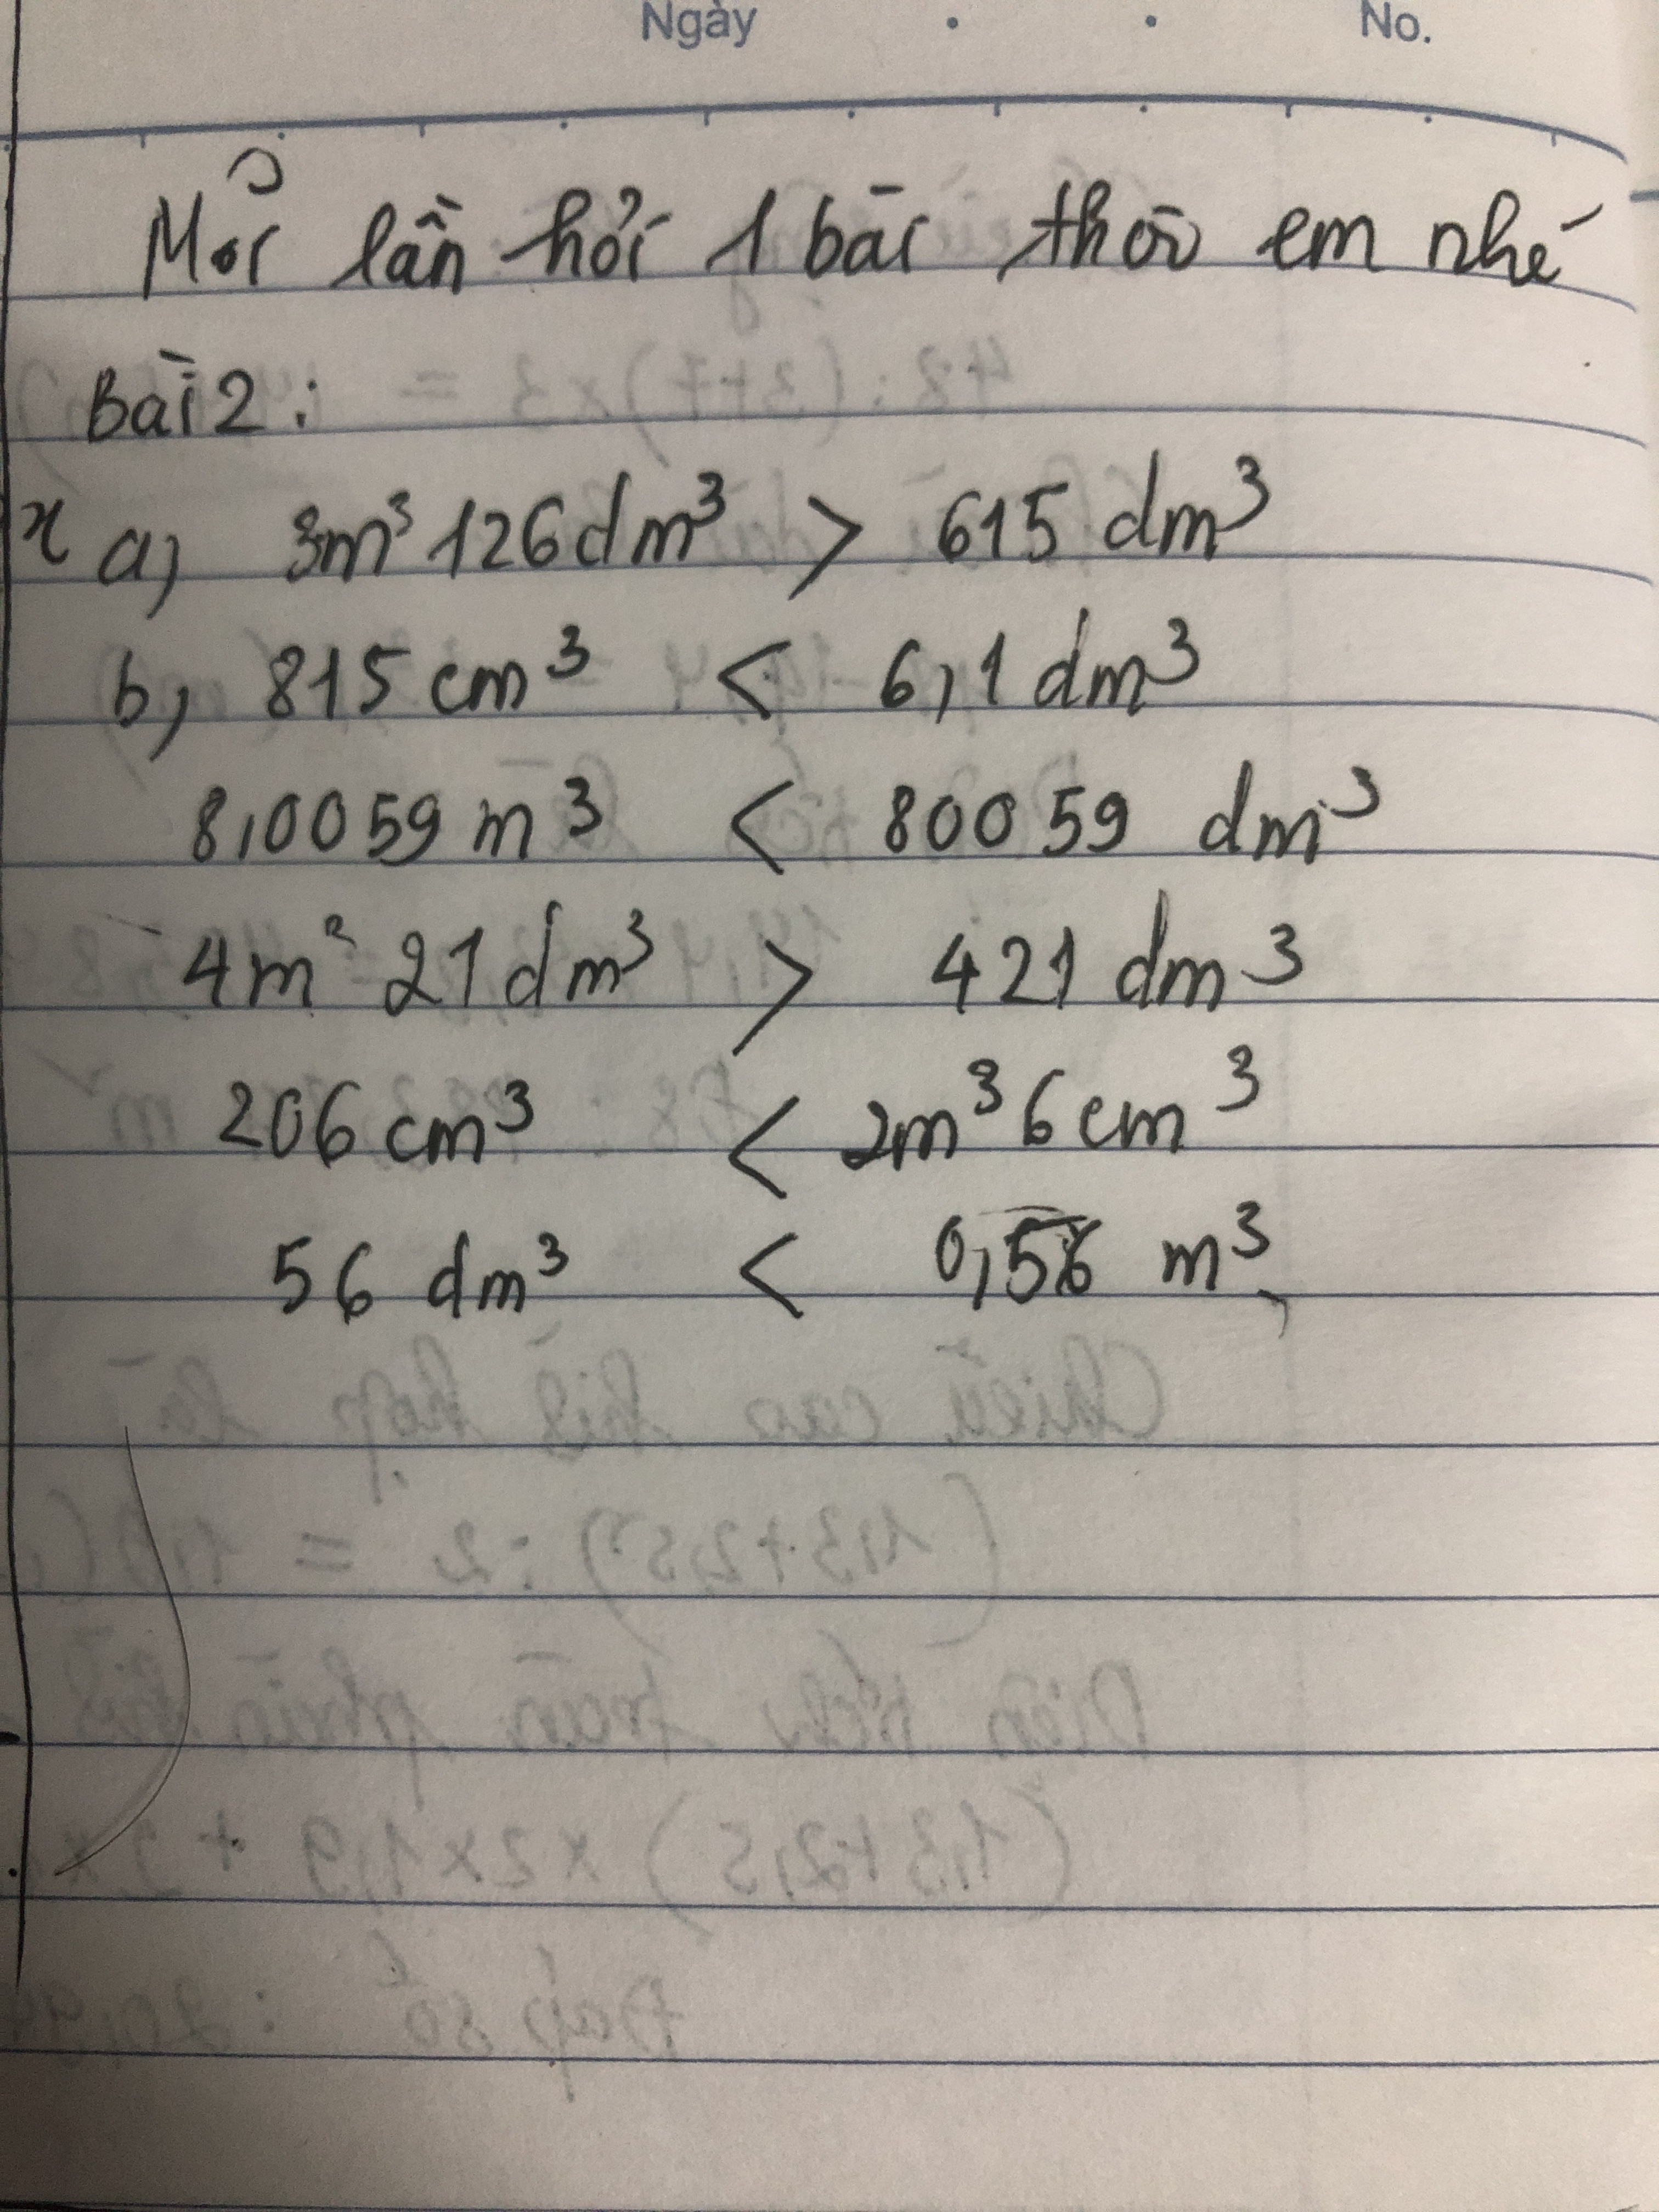 Ngày No.
Mỗi lần hỏi 1 bài thôi em nhé
Bài 2:
x a, 3m³ 126dm³ > 615 dm³
b, 815 cm³ < 6,1 dm³
8,0059 m³ < 80059 dm³
4m³ 21dm³ > 421 dm³
206 cm³ < 2m³ 6cm³
56 dm³ < 0,56 m³